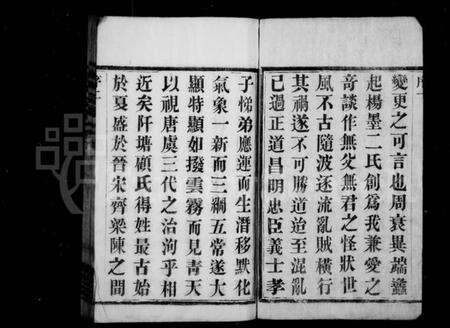 變更之可言也周衰異端蠭
起楊墨二氏創爲我兼愛之
奇談作無父無君之怪狀世
風不古隨波逐流亂賊橫行
其禍遂不可勝道迨至混亂
已過正道昌明忠臣義士孝
子悌弟應運而生潛移默化
氣象一新而三綱五常遂大
顯特顯如撥雲霧而見青天
以視唐虞三代之治洵乎相
近矣阡塘顧氏得姓最古始
於夏盛於晉宋齊梁陳之間